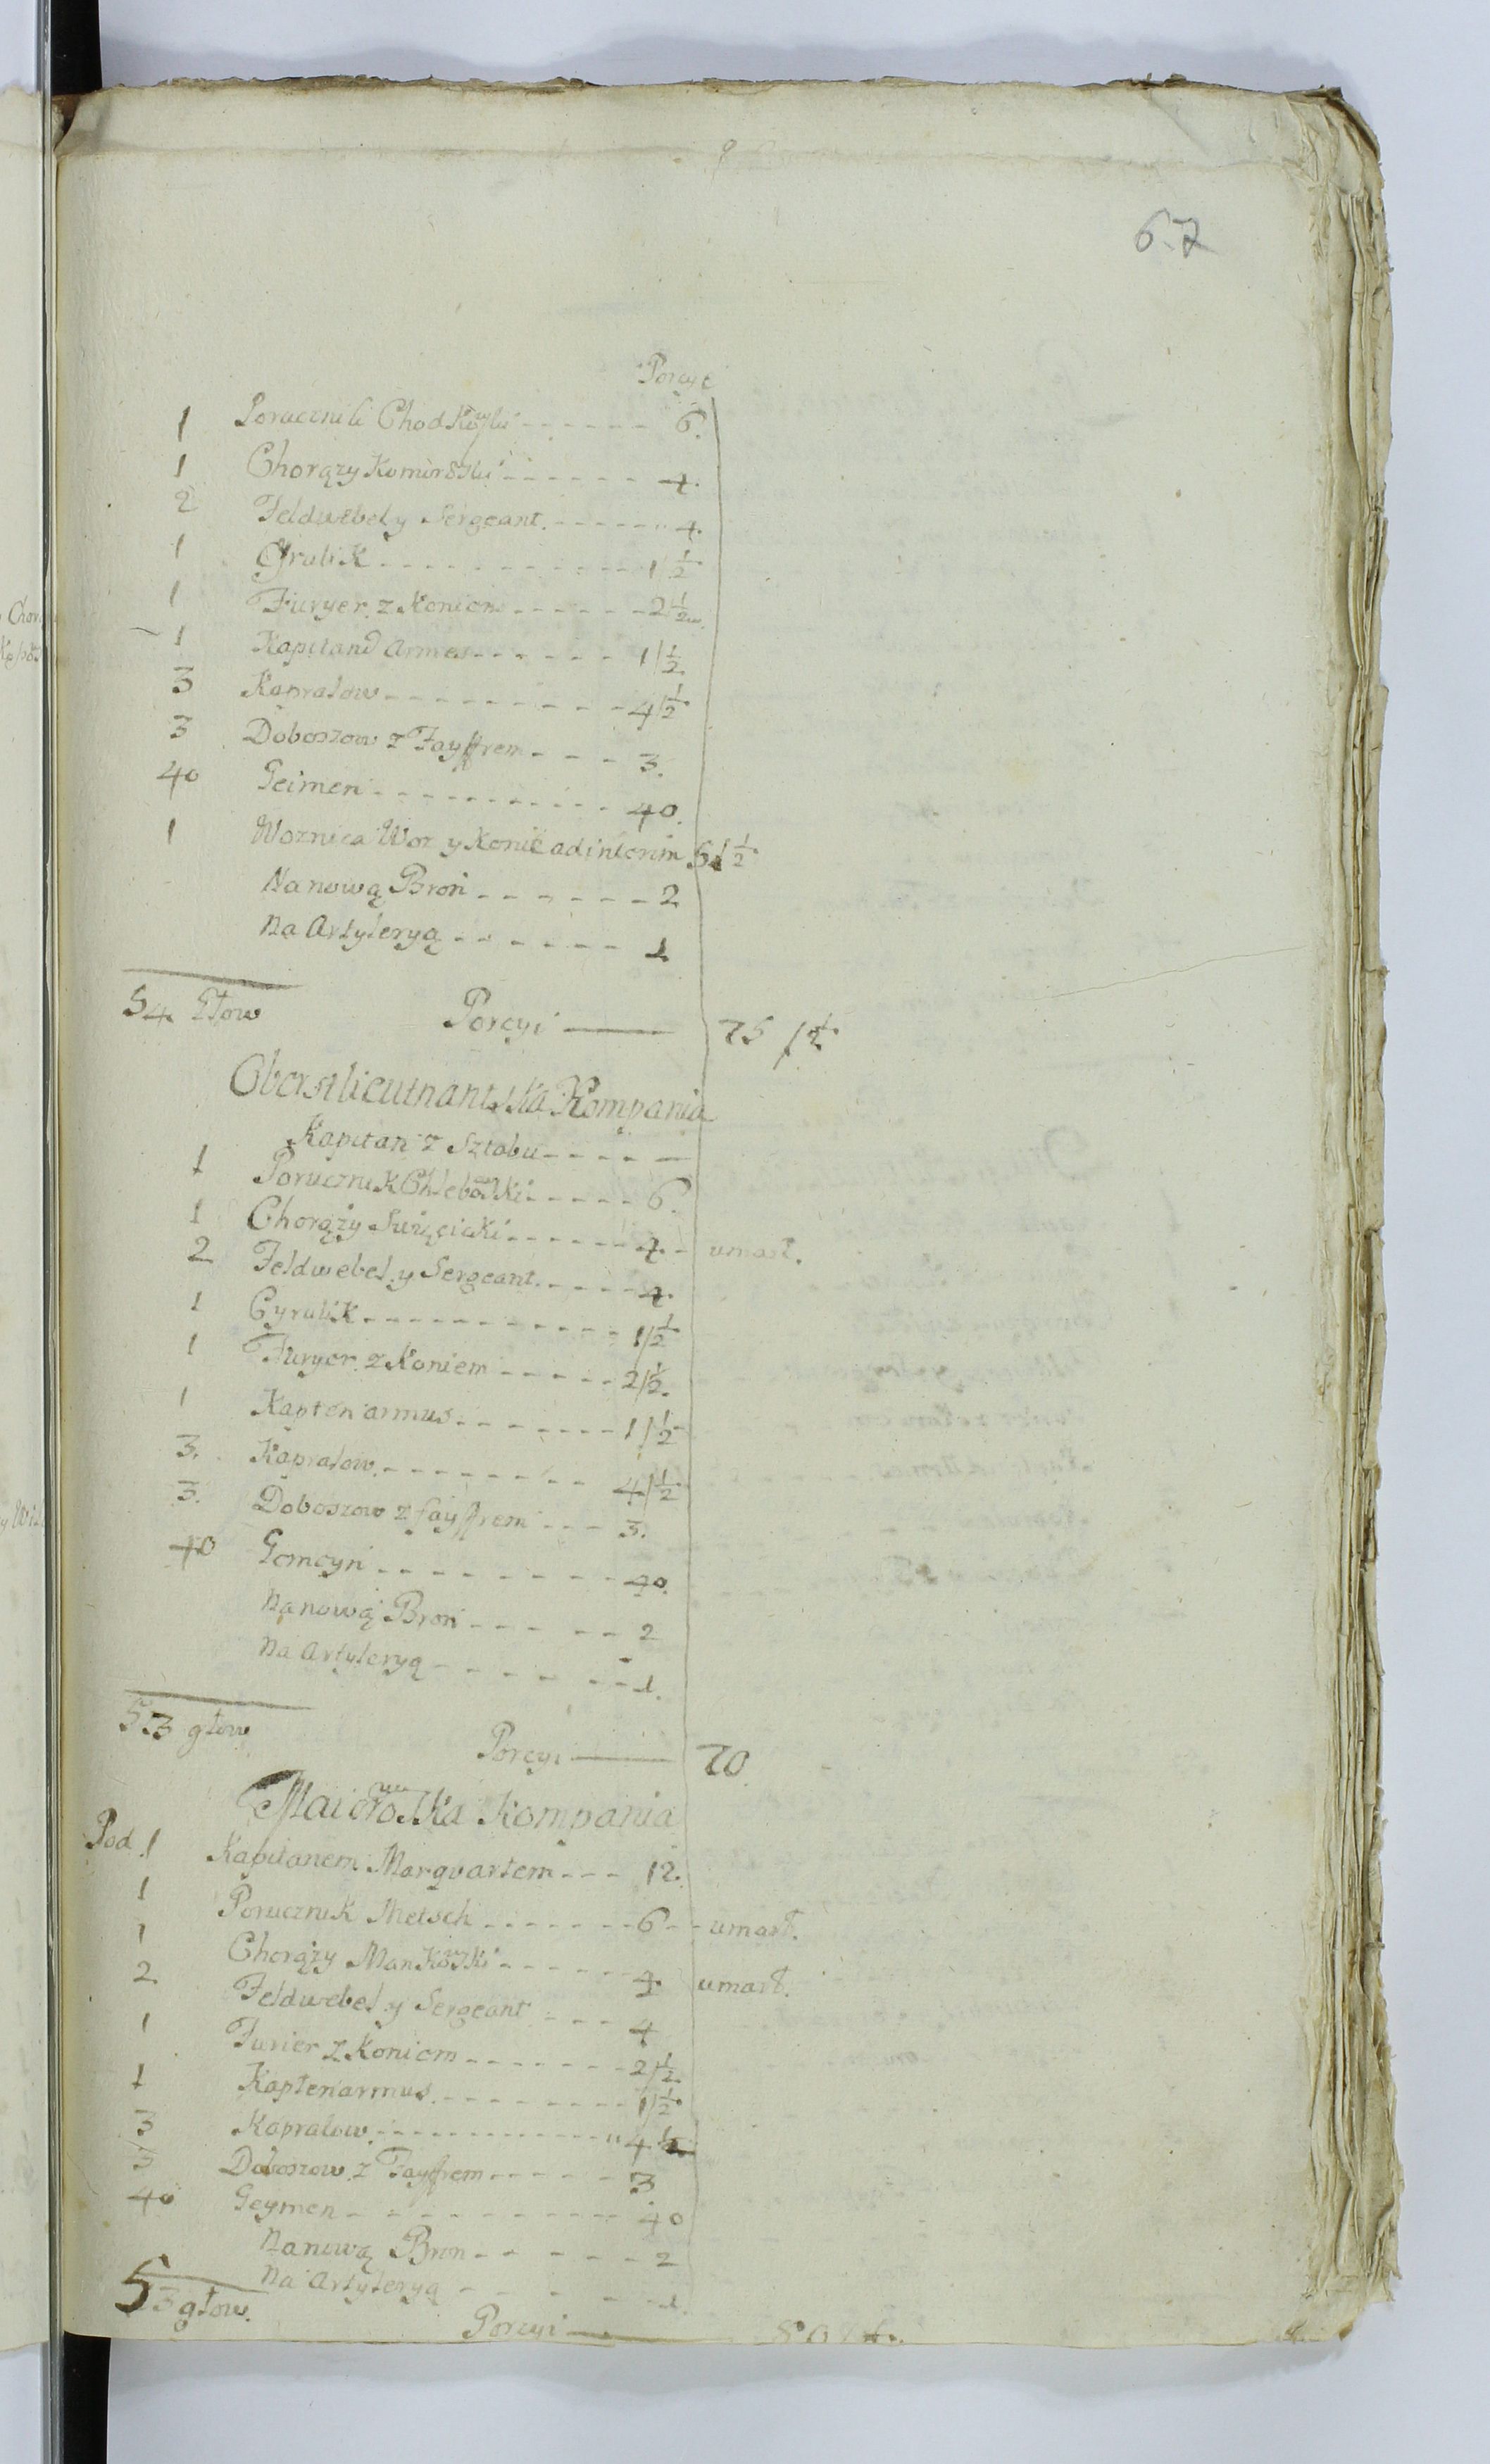 67
Porcyi
1 Porucznik Chodkowski 6.
1 Chorązy Komorowski 4.
2 Feldwebel y Sergeant. 4.
1 Cyrulik 1 1/2
1 Furyer z Koniem 2 1/2
1 Kapitand Armes 1 1/2
3 Kapralow 4 1/2
3 Doboszow z Fayffrem 3.
40 Geimen 40.
1 Woznica Woz y Konie adinterim 6 1/2
Na nową Broń 2
Na Artyleryą 1
54 Głow Porcyi 75 1/2
Oberstlieutnantska Kompania
Kapitan z Sztabu
1 Porucznik Chlebowski 6.
1 Chorąży Swięcicki 4. umarł.
2 Feldwebel y Sergeant. 4.
1 Cyrulik 1 1/2
1 Furyer z Koniem 2 1/2.
1 Kaptenarmus 1 1/2
3. Kapralow. 4 1/2
3. Doboszow z fayffrem 3.
40 Gemeyn 40.
Na nową Broń 2
Na Artyleryą 1.
53 głow Porcyi 70
Maiorowska Kompania
Pod 1 Kapitanem Marqvartem 12.
1 Porucznik Metsch 6 umarł.
1 Chorązy Mankowski 4 umarł.
2 Feldwebel y Sergeant 4
1 Furier z Koniem 2 1/2
1 Kaptenarmus. 1 1/2
3 Kapralow. 4 1/2
3 Doboszow z Fayffrem 3
40 Geymen 40
Na nową Bron 2
Na Artyleryą 1.
53 głow. Porcyi